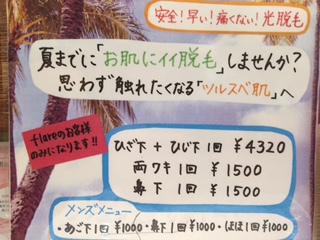 安全!早い!痛くない!光脱毛
夏までに「お肌にイイ脱毛」しませんか?
思わず触れたくなる「ツルスベ肌」へ
flareのお客様
のみになります!!
ひざ下+ひじ下1回 ¥4320
両ワキ1回 ¥1500
鼻下1回 ¥1500
メンズメニュー
・あご下1回¥1000・鼻下1回¥1000・ほほ1回¥1000